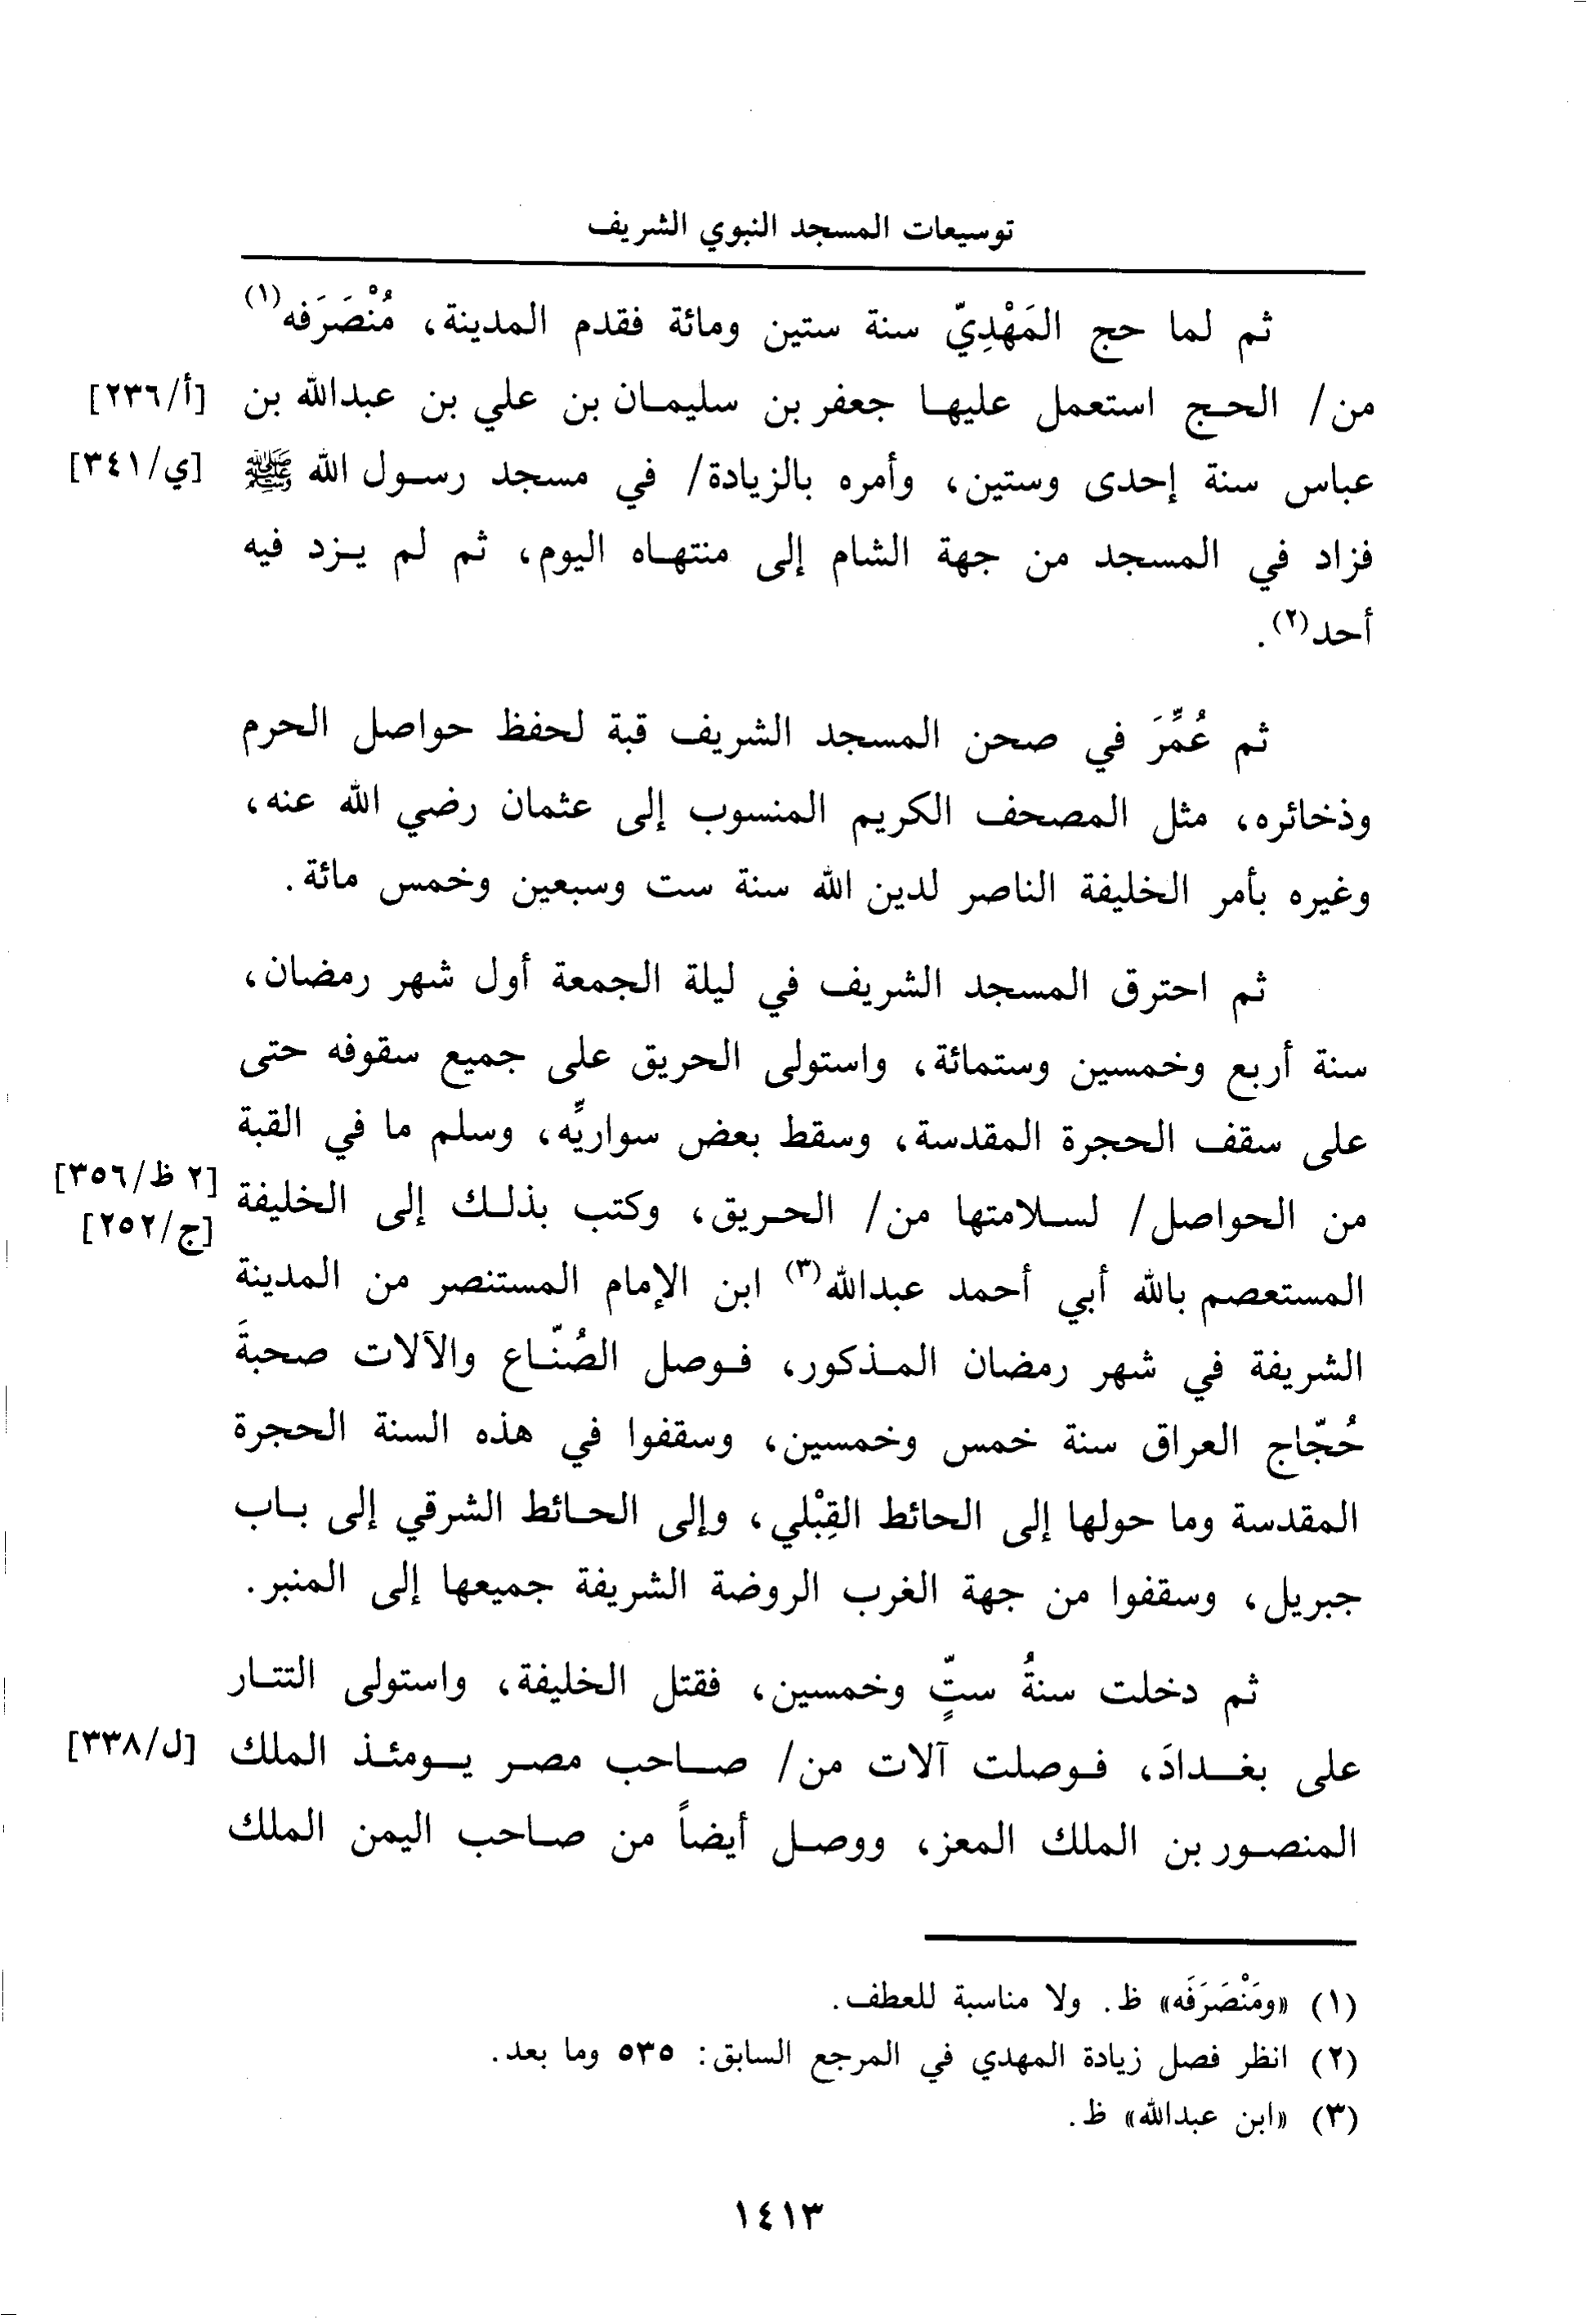 توسيعات المسجد النبوي الشريف
ثم لما حج المَهْدِيّ سنة ستين ومائة فقدم المدينة، مُنْصَرَفه(١)
من/ الحج استعمل عليها جعفر بن سليمان بن علي بن عبدالله بن [أ/٢٣٦]
عباس سنة إحدى وستين، وأمره بالزيادة/ في مسجد رسول الله ﷺ [ي/٣٤١]
فزاد في المسجد من جهة الشام إلى منتهاه اليوم، ثم لم يزد فيه
أحد(٢).
ثم عُمِّرَ في صحن المسجد الشريف قبة لحفظ حواصل الحرم
وذخائره، مثل المصحف الكريم المنسوب إلى عثمان رضي الله عنه،
وغيره بأمر الخليفة الناصر لدين الله سنة ست وسبعين وخمس مائة.
ثم احترق المسجد الشريف في ليلة الجمعة أول شهر رمضان،
سنة أربع وخمسين وستمائة، واستولى الحريق على جميع سقوفه حتى
على سقف الحجرة المقدسة، وسقط بعض سواريِّه، وسلم ما في القبة
من الحواصل/ لسلامتها من/ الحريق، وكتب بذلك إلى الخليفة [٢ ظ/٣٥٦] [ج/٢٥٢]
المستعصم بالله أبي أحمد عبدالله(٣) ابن الإمام المستنصر من المدينة
الشريفة في شهر رمضان المذكور، فوصل الصُنّاع والآلات صحبةَ
حُجّاج العراق سنة خمس وخمسين، وسقفوا في هذه السنة الحجرة
المقدسة وما حولها إلى الحائط القِبْلي، وإلى الحائط الشرقي إلى باب
جبريل، وسقفوا من جهة الغرب الروضة الشريفة جميعها إلى المنبر.
ثم دخلت سنةُ ستٍّ وخمسين، فقتل الخليفة، واستولى التتار
على بغدادَ، فوصلت آلات من/ صاحب مصر يومئذ الملك [ل/٣٣٨]
المنصور بن الملك المعز، ووصل أيضاً من صاحب اليمن الملك
(١) «ومَنْصَرَفَه» ظ. ولا مناسبة للعطف.
(٢) انظر فصل زيادة المهدي في المرجع السابق: ٥٣٥ وما بعد.
(٣) «ابن عبدالله» ظ.
١٤١٣